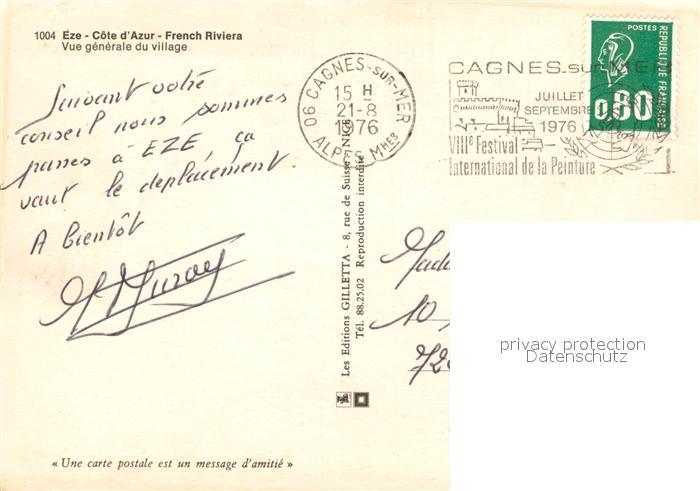 1004 Eze - Côte d'Azur - French Riviera
Vue générale du village
Suivant votre
conseil nous sommes
passés à EZE, ça
vaut le déplacement.
A bientôt
06 CAGNES-SUR-MER
15 H
21-8
1976
ALPES Mmes
CAGNES-sur-MER
JUILLET
SEPTEMBRE
1976
VIIIe Festival
International de la Peinture
POSTES
REPUBLIQUE FRANÇAISE
0,80
Les Editions GILLETTA - 8, rue de Suisse - NICE
Tél. 88.25.02 Reproduction interdite
10
72
privacy protection
Datenschutz
« Une carte postale est un message d'amitié »